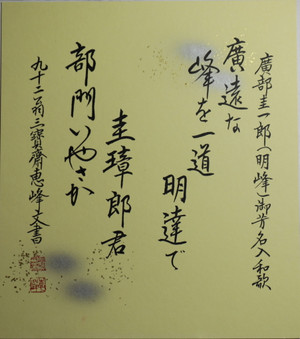 廣部圭一郎(明峰)御芳名入和歌
廣遠な
峰を一道
明達で
圭璋郎君
部門いやさか
九十二翁三寶齋恵峰文書